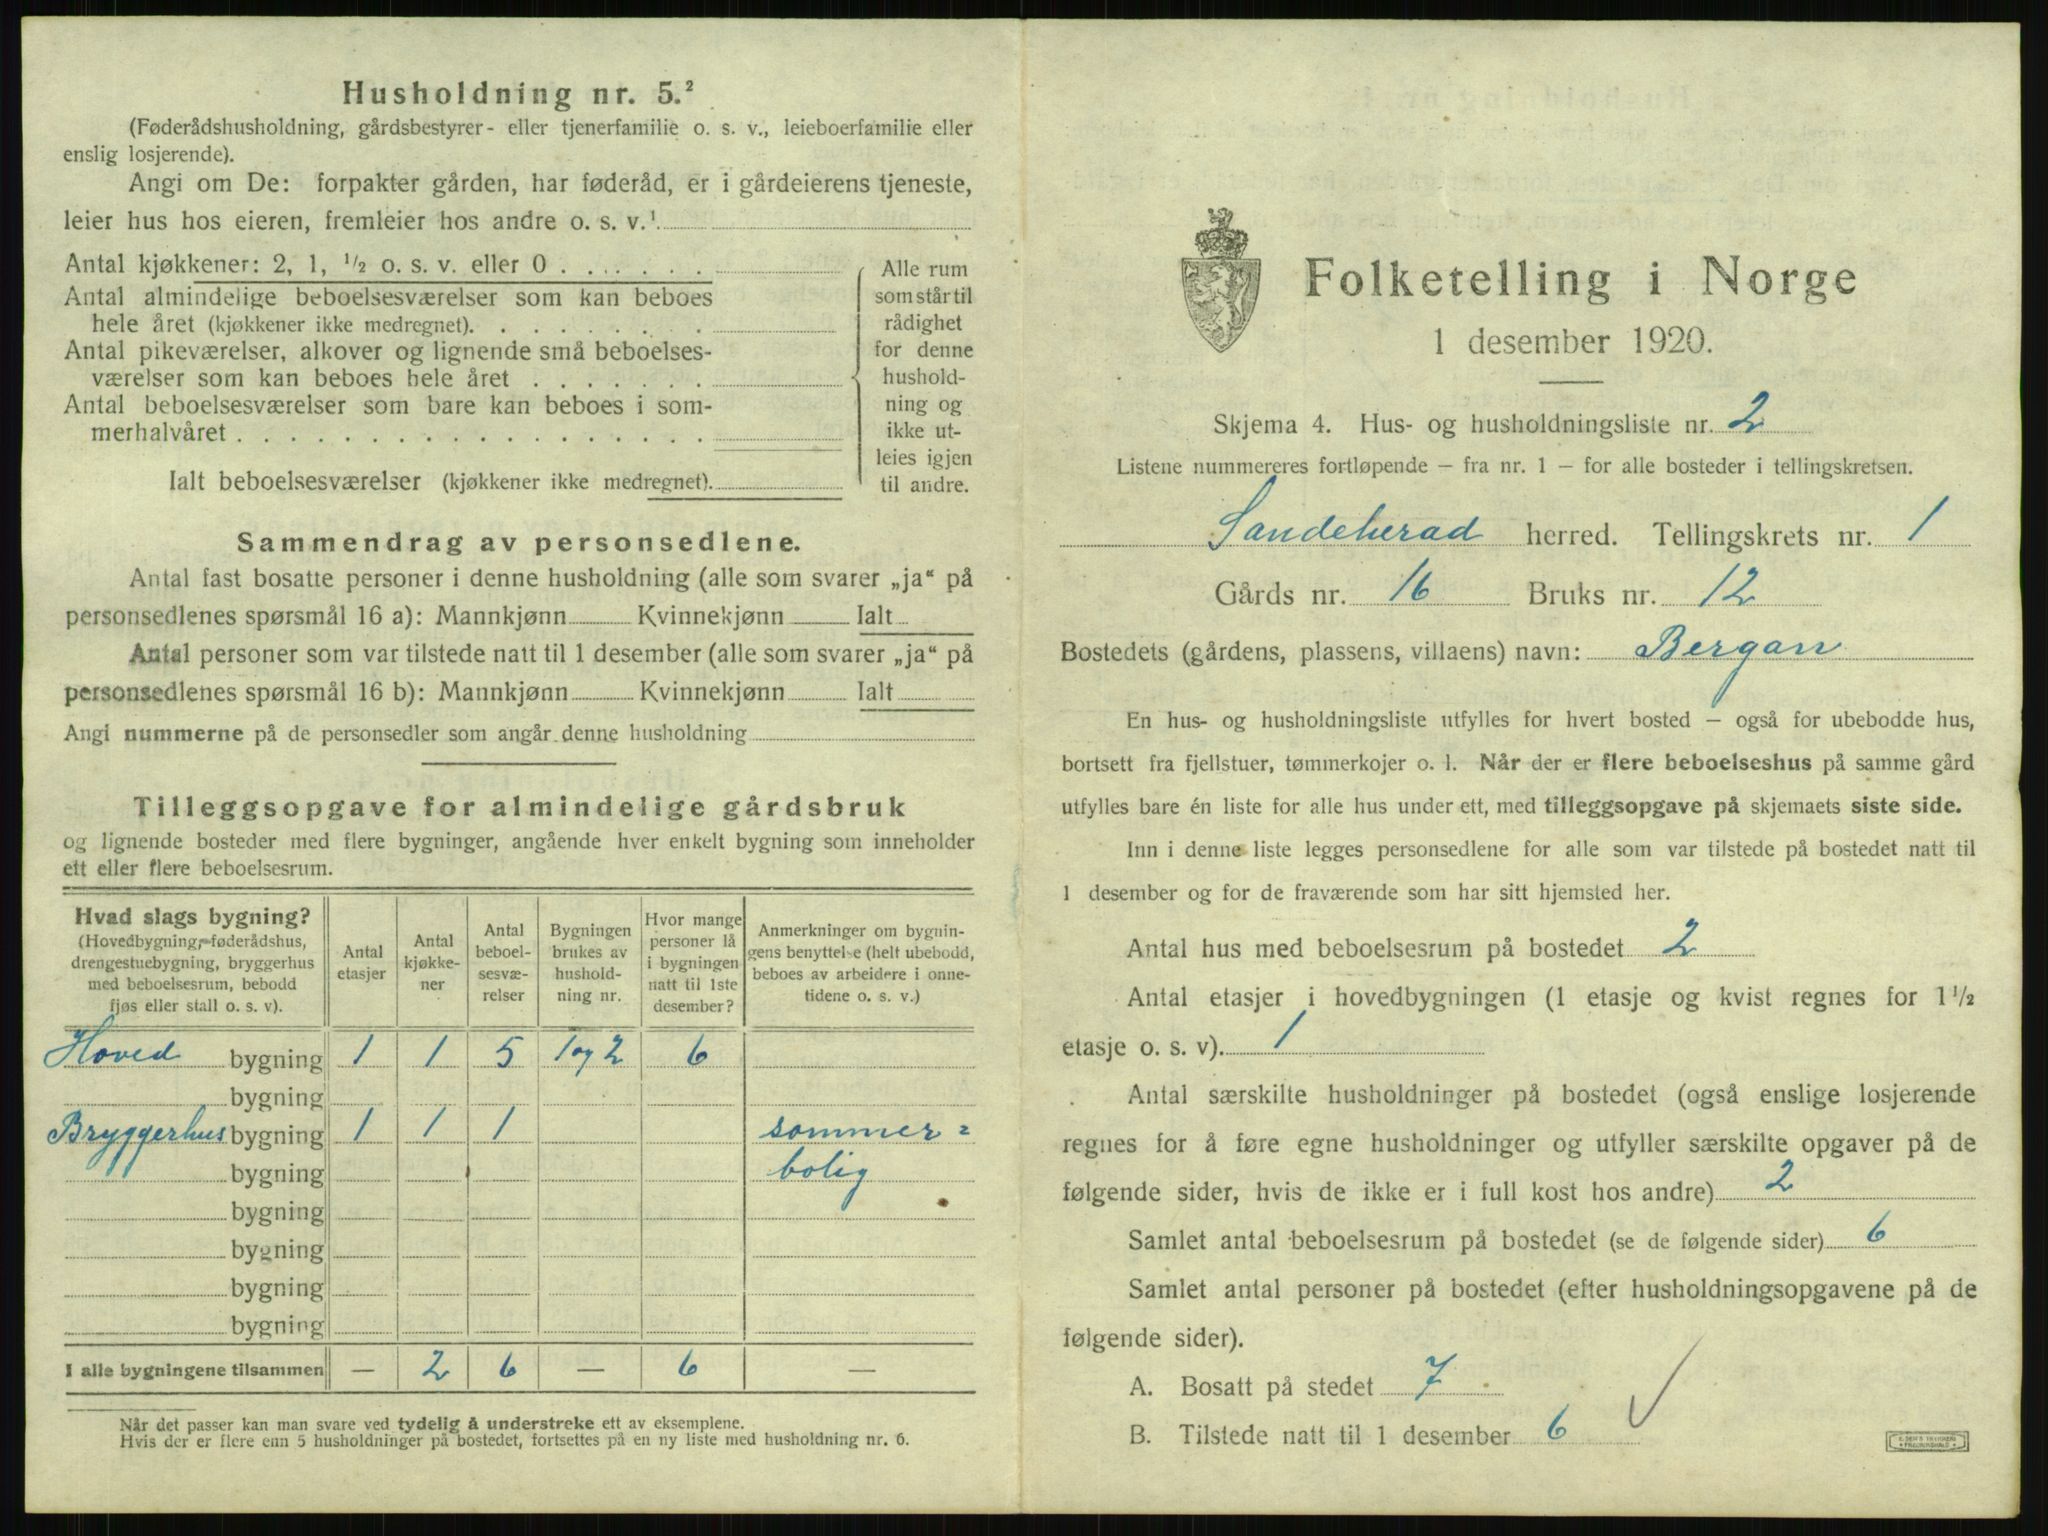 Husholdning nr. 5.²
(Føderådshusholdning, gårdsbestyrer- eller tjenerfamilie o. s. v., leieboerfamilie eller
enslig losjerende).
Angi om De: forpakter gården, har føderåd, er i gårdeierens tjeneste,
leier hus hos eieren, fremleier hos andre o. s. v.¹
Antal kjøkkener: 2, 1, ¹/₂ o. s. v. eller 0
Antal almindelige beboelsesværelser som kan beboes
hele året (kjøkkener ikke medregnet).
Antal pikeværelser, alkover og lignende små beboelses-
værelser som kan beboes hele året
Antal beboelsesværelser som bare kan beboes i som-
merhalvåret
Ialt beboelsesværelser (kjøkkener ikke medregnet).
Alle rum
som står til
rådighet
for denne
hushold-
ning og
ikke ut-
leies igjen
til andre.
Sammendrag av personsedlene.
Antal fast bosatte personer i denne husholdning (alle som svarer „ja“ på
personsedlenes spørsmål 16 a): Mannkjønn Kvinnekjønn Ialt
Antal personer som var tilstede natt til 1 desember (alle som svarer „ja“ på
personsedlenes spørsmål 16 b): Mannkjønn Kvinnekjønn Ialt
Angi nummerne på de personsedler som angår denne husholdning
Tilleggsopgave for almindelige gårdsbruk
og lignende bosteder med flere bygninger, angående hver enkelt bygning som inneholder
ett eller flere beboelsesrum.
Hvad slags bygning?
(Hovedbygning, føderådshus,
drengestuebygning, bryggerhus
med beboelsesrum, bebodd
fjøs eller stall o. s. v).
Antal
etasjer
Antal
kjøkke-
ner
Antal
beboel-
sesvæ-
relser
Bygningen
brukes av
hushold-
ning nr.
Hvor mange
personer lå
i bygningen
natt til 1ste
desember?
Anmerkninger om bygnin-
gens benyttelse (helt ubebodd,
beboes av arbeidere i onne-
tidene o. s. v.)
Hoved bygning 1 1 5 1 og 2 6
bygning
Bryggerhus bygning 1 1 1 sommer=
bygning bolig
bygning
bygning
bygning
bygning
I alle bygningene tilsammen — 2 6 — 6 —
Når det passer kan man svare ved tydelig å understreke ett av eksemplene.
Hvis der er flere enn 5 husholdninger på bostedet, fortsettes på en ny liste med husholdning nr. 6.
Folketelling i Norge
1 desember 1920.
Skjema 4. Hus- og husholdningsliste nr. 2
Listene nummereres fortløpende — fra nr. 1 — for alle bosteder i tellingskretsen.
Sandeherad herred. Tellingskrets nr. 1
Gårds nr. 16 Bruks nr. 12
Bostedets (gårdens, plassens, villaens) navn: Bergan
En hus- og husholdningsliste utfylles for hvert bosted — også for ubebodde hus,
bortsett fra fjellstuer, tømmerkojer o. l. Når der er flere beboelseshus på samme gård
utfylles bare én liste for alle hus under ett, med tilleggsopgave på skjemaets siste side.
Inn i denne liste legges personsedlene for alle som var tilstede på bostedet natt til
1 desember og for de fraværende som har sitt hjemsted her.
Antal hus med beboelsesrum på bostedet 2
Antal etasjer i hovedbygningen (1 etasje og kvist regnes for 1¹/₂
etasje o. s. v). 1
Antal særskilte husholdninger på bostedet (også enslige losjerende
regnes for å føre egne husholdninger og utfyller særskilte opgaver på de
følgende sider, hvis de ikke er i full kost hos andre) 2
Samlet antal beboelsesrum på bostedet (se de følgende sider) 6
Samlet antal personer på bostedet (efter husholdningsopgavene på de
følgende sider).
A. Bosatt på stedet 7
B. Tilstede natt til 1 desember 6